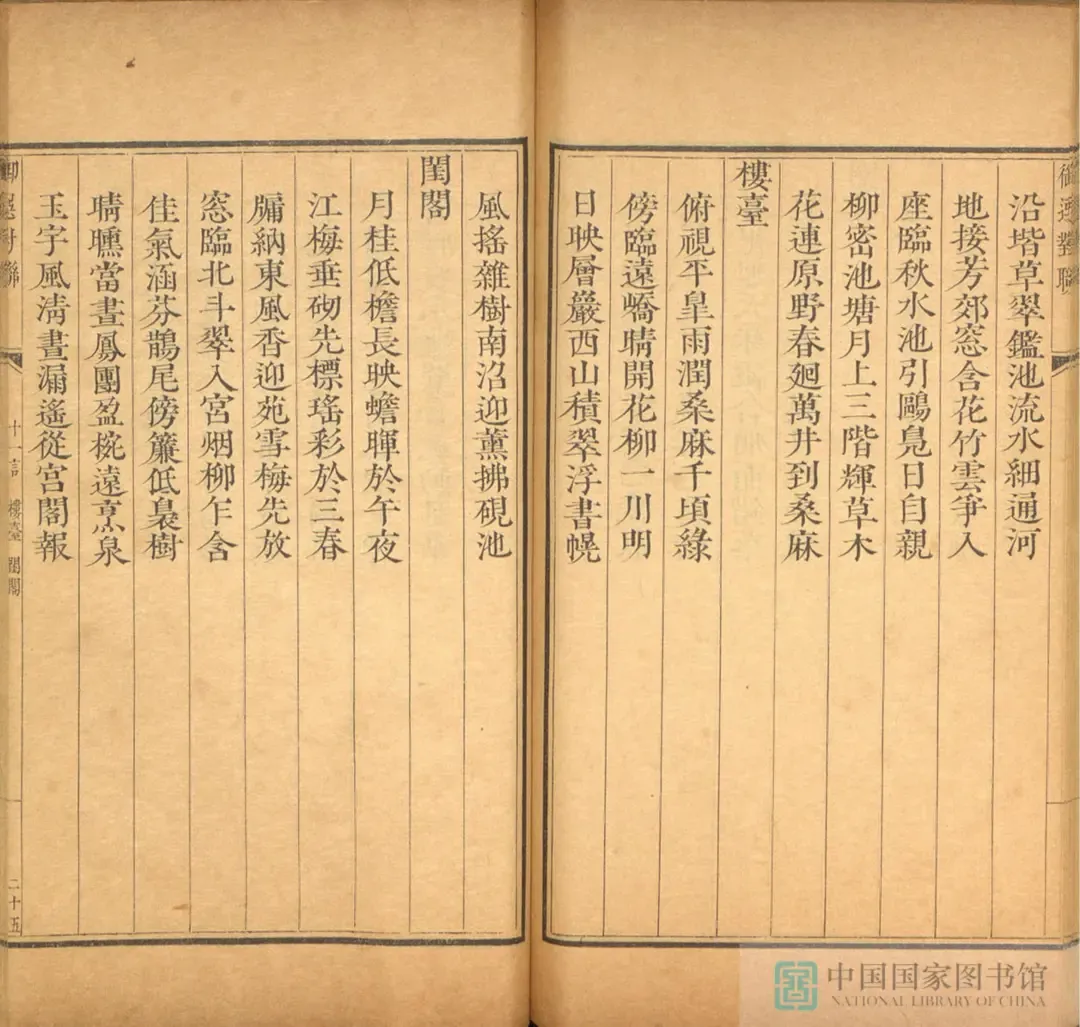 御選對聯
沿堦草翠鑑池流水細通河
地接芳郊窓含花竹雲爭入
座臨秋水池引鷗鳬日自親
柳密池塘月上三階輝草木
花連原野春廻萬井到桑麻
樓臺
俯視平臯雨潤桑麻千頃綠
傍臨遠嶠晴開花柳一川明
日映層巖西山積翠浮書幌
風搖雜樹南沼迎薰拂硯池
閨閣
月桂低檐長映蟾暉於午夜
江梅垂砌先標瑤彩於三春
牖納東風香迎苑雪梅先放
窓臨北斗翠入宮烟柳乍含
佳氣涵芬鵲尾傍簾低裊樹
晴曛當晝鳳團盈椀遠烹泉
玉宇風清晝漏遙從宮閣報
御選對聯 十一言 樓臺 閨閣 二十五
中国国家图书馆
NATIONAL LIBRARY OF CHINA